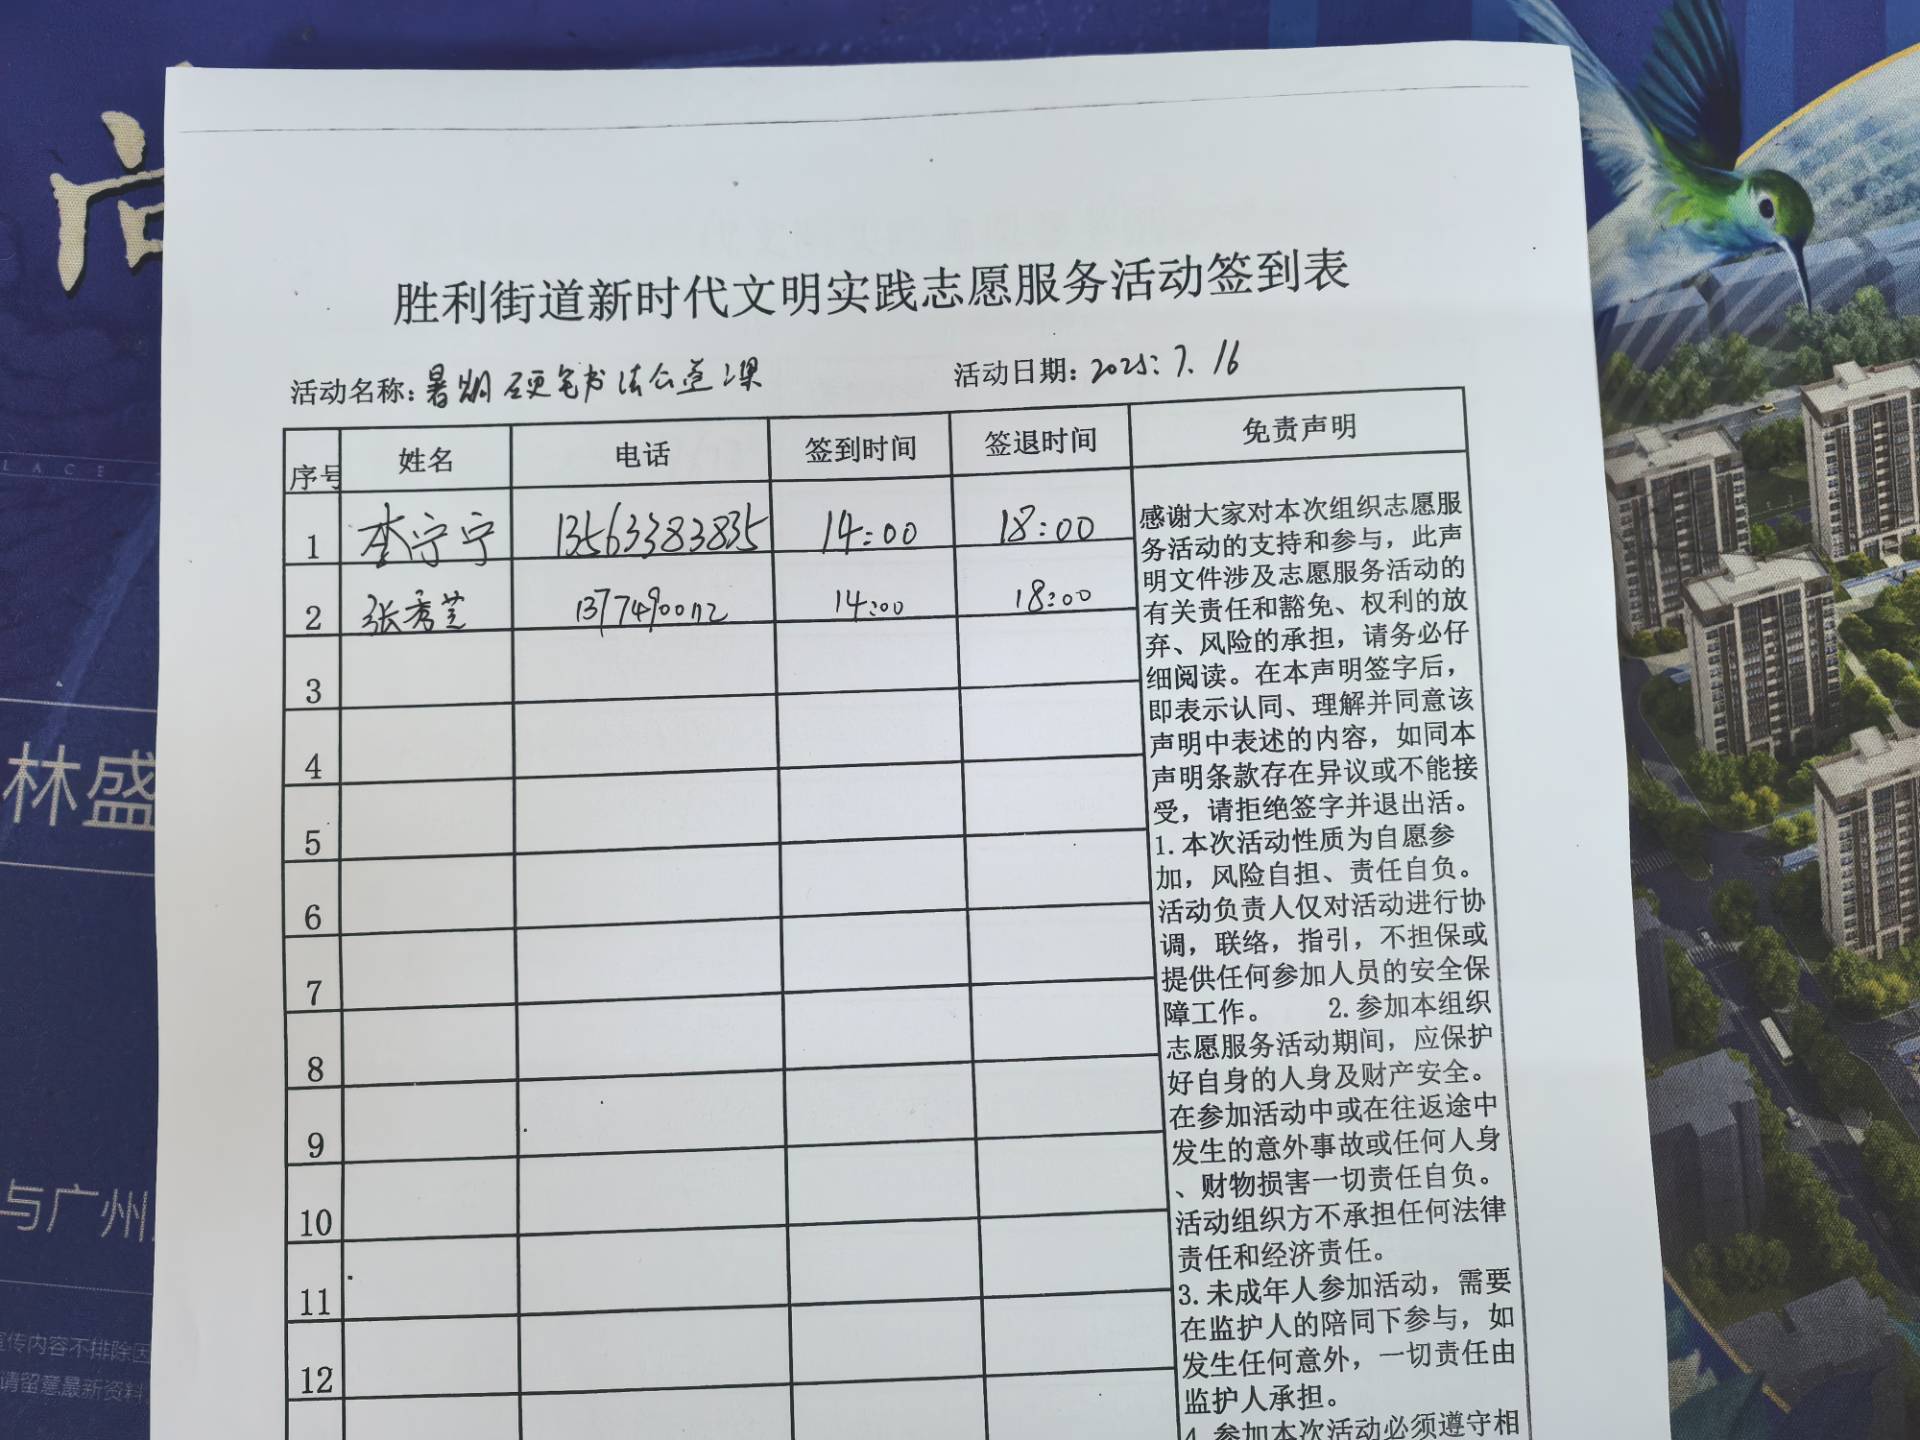 胜利街道新时代文明实践志愿服务活动签到表
活动名称：暑期硬笔书法公益课 活动日期：2025.7.16
序号 姓名 电话 签到时间 签退时间 免责声明
1 李宁宁 13563383835 14:00 18:00
2 张秀芝 14:00 18:00
3
4
5
6
7
8
9
10
11
12
感谢大家对本次组织志愿服
务活动的支持和参与，此声
明文件涉及志愿服务活动的
有关责任和豁免、权利的放
弃、风险的承担，请务必仔
细阅读。在本声明签字后，
即表示认同、理解并同意该
声明中表述的内容，如同本
声明条款存在异议或不能接
受，请拒绝签字并退出活。
1.本次活动性质为自愿参
加，风险自担、责任自负。
活动负责人仅对活动进行协
调，联络，指引，不担保或
提供任何参加人员的安全保
障工作。 2.参加本组织
志愿服务活动期间，应保护
好自身的人身及财产安全。
在参加活动中或在往返途中
发生的意外事故或任何人身
、财物损害一切责任自负。
活动组织方不承担任何法律
责任和经济责任。
3.未成年人参加活动，需要
在监护人的陪同下参与，如
发生任何意外，一切责任由
监护人承担。
4.参加本次活动必须遵守相
LACE
林盛
与广州
宣传内容不排除因
请留意最新资料